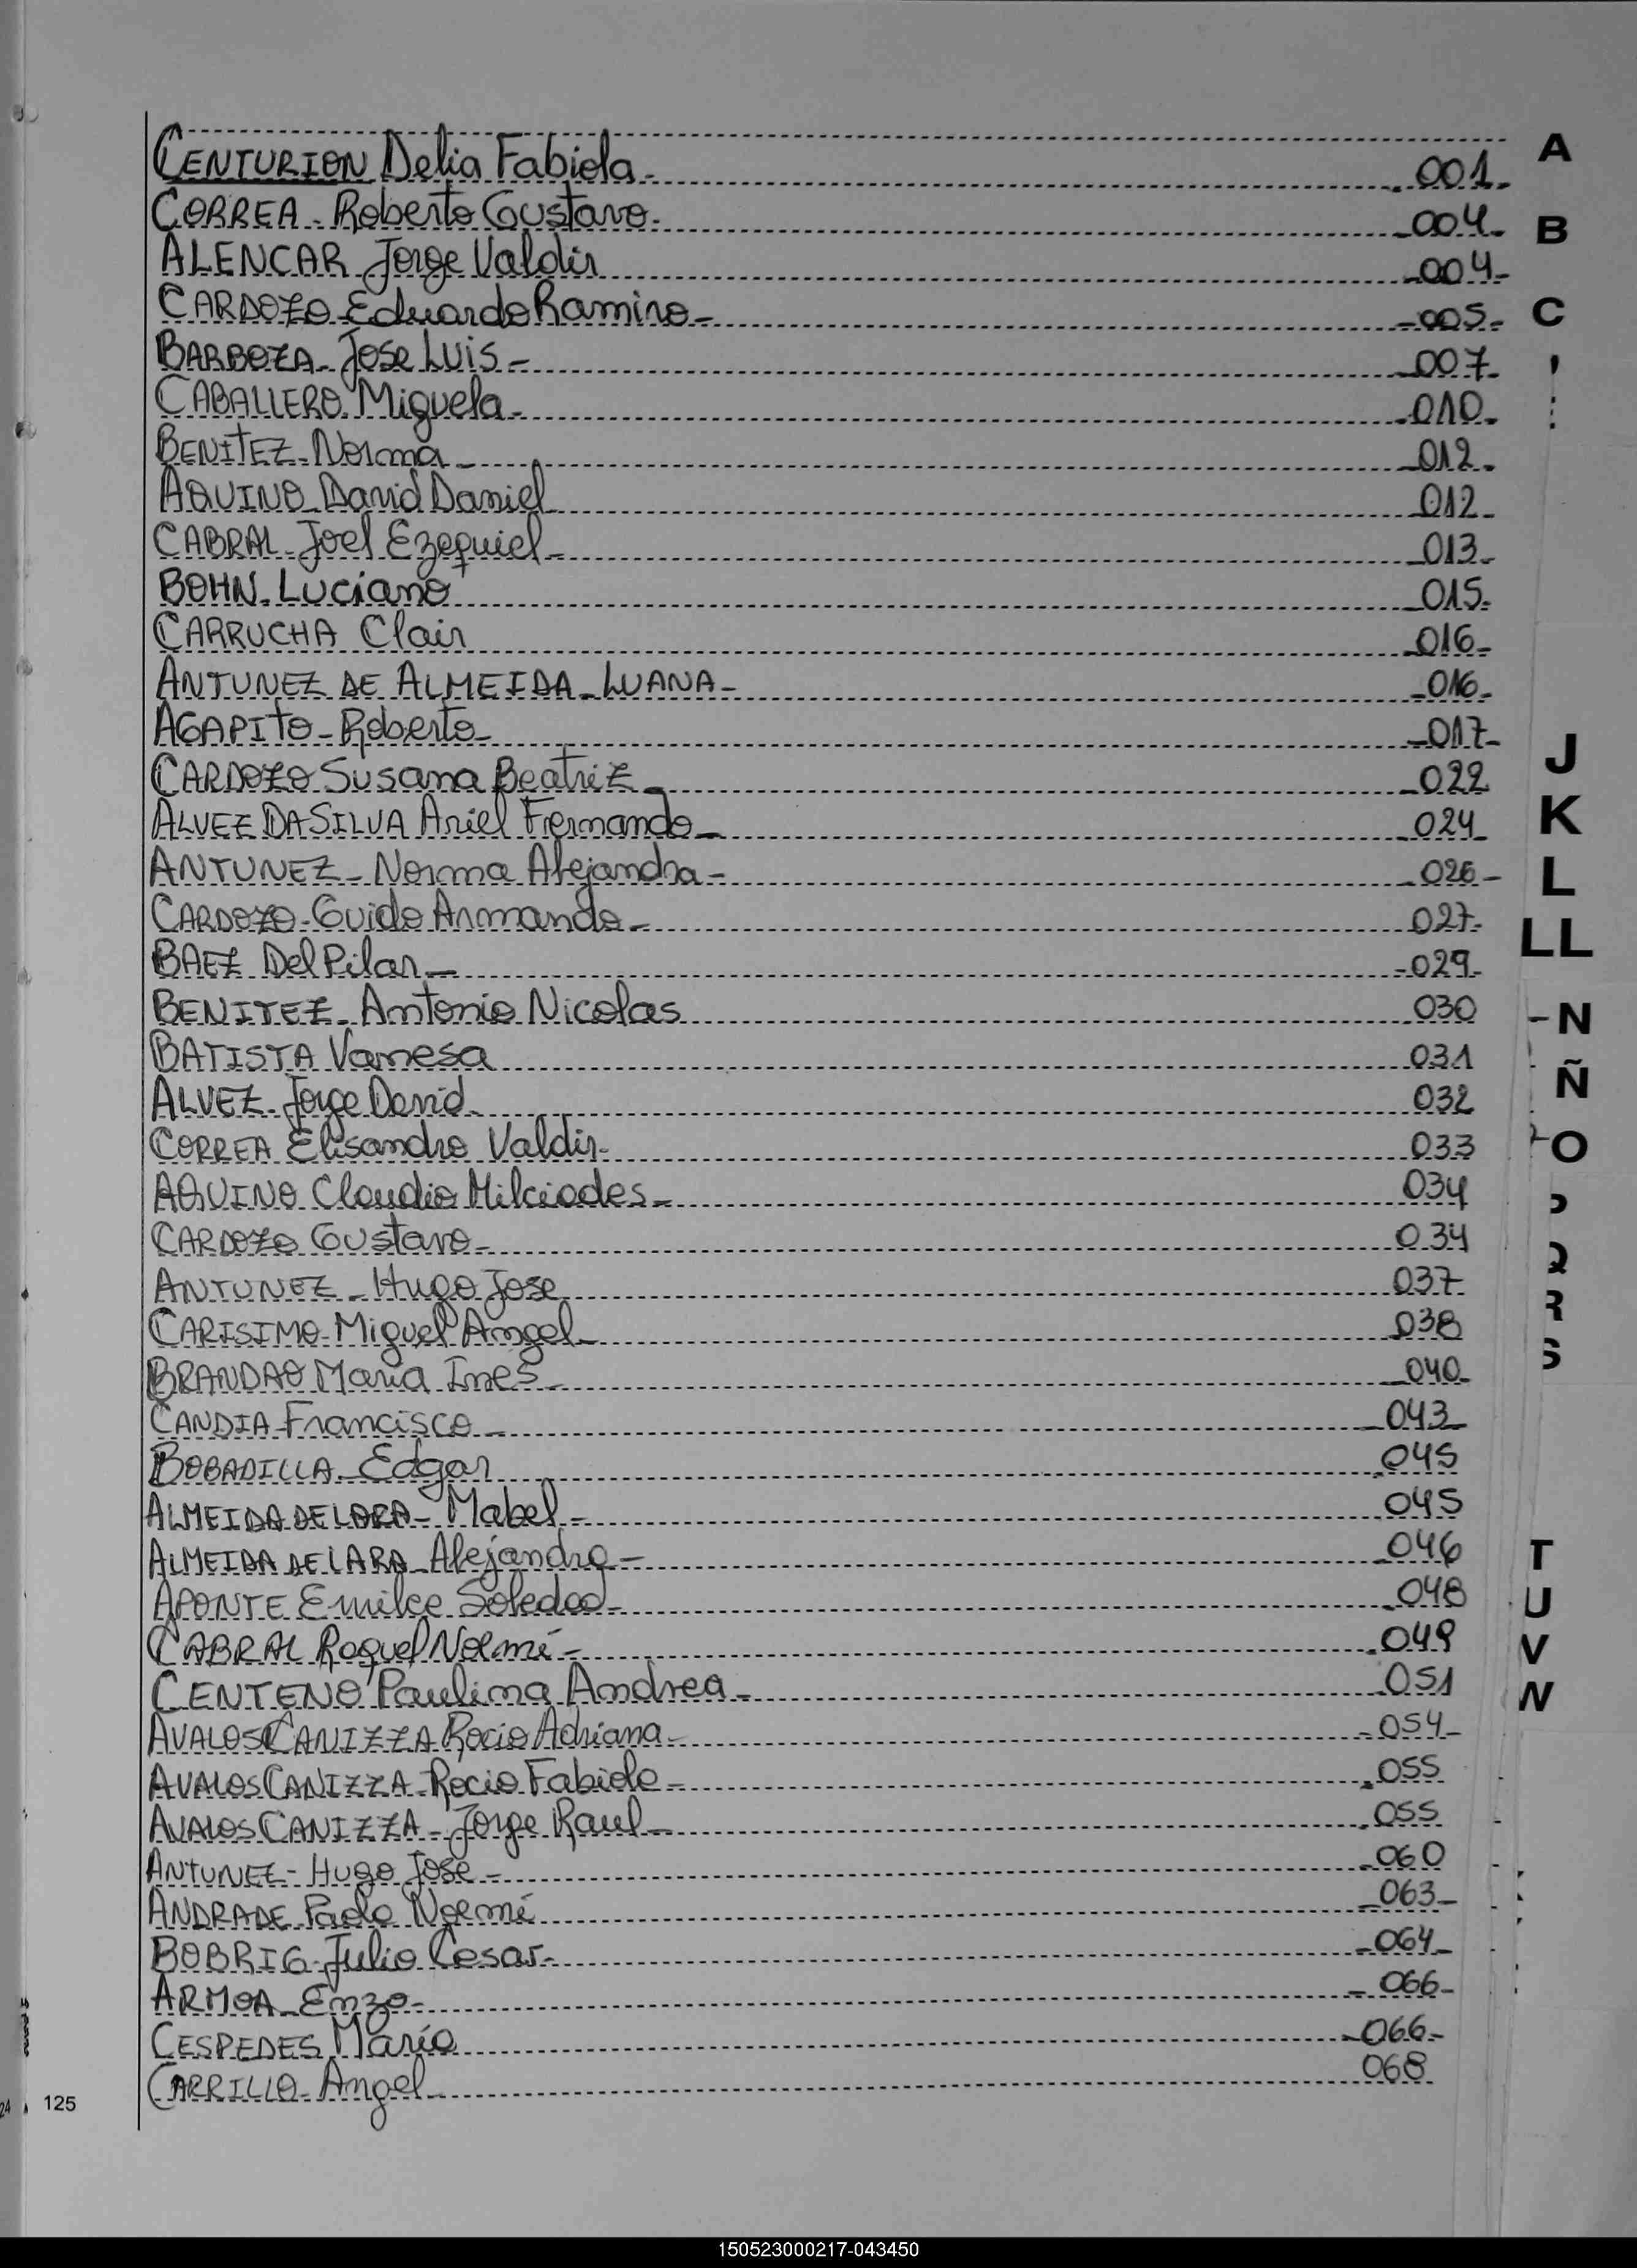 CENTURION Delia Fabiola - 001-
CORREA - Roberto Gustavo. - 004-
ALENCAR Jorge Valdir - 004-
CARDOZO Eduardo Ramiro - - 005-
BARBOZA - Jose Luis - - 007-
CABALLERO Miguela - - 010-
BENITEZ - Norma - - 012-
AQUINO David Daniel - 012-
CABRAL - Joel Ezequiel - - 013-
BOHN - Luciano - 015-
CARRUCHA Clair - 016-
ANTUNEZ DE ALMEIDA - LUANA - - 016-
AGAPITO - Roberto - - 017-
CARDOZO Susana Beatriz - - 022
ALVEZ DA SILVA Ariel Fernando - - 024-
ANTUNEZ - Norma Alejandra - 026-
CARDOZO - Guido Armando - 027-
BAEZ Del Pilar - - 029-
BENITEZ - Antonio Nicolas 030
BATISTA Vanesa 031
ALVEZ - Jorge David 032
CORREA Elisandro Valdir - 033
AQUINO Claudio Milciades - 034
CARDOZO Gustavo - 034
ANTUNEZ - Hugo Jose 037
CARISIMO - Miguel Angel - 038
BRANDAO Maria Ines - - 040-
CANDIA - Francisco - - 043-
BOBADILLA - Edgar 045
ALMEIDA DE LARA - Mabel - 045
ALMEIDA DE LARA - Alejandro - 046
APONTE Emilce Soledad - - 048
CABRAL Raquel Noemí - 049
CENTENO Paulina Andrea - 051
AVALOS CANIZZA Rocio Adriana - - 054-
AVALOS CANIZZA - Rocio Fabiola - 055
AVALOS CANIZZA - Jorge Raul - 055
ANTUNEZ - Hugo Jose - - 060
ANDRADE Paola Noemí - 063-
BOBRIG - Julio Cesar - - 064-
ARMOA - Enzo - - 066-
CESPEDES Mario - 066-
CARRILLO - Angel - 068
A
B
C
J
K
L
LL
N
Ñ
O
Q
R
S
T
U
V
W
125
150523000217-043450